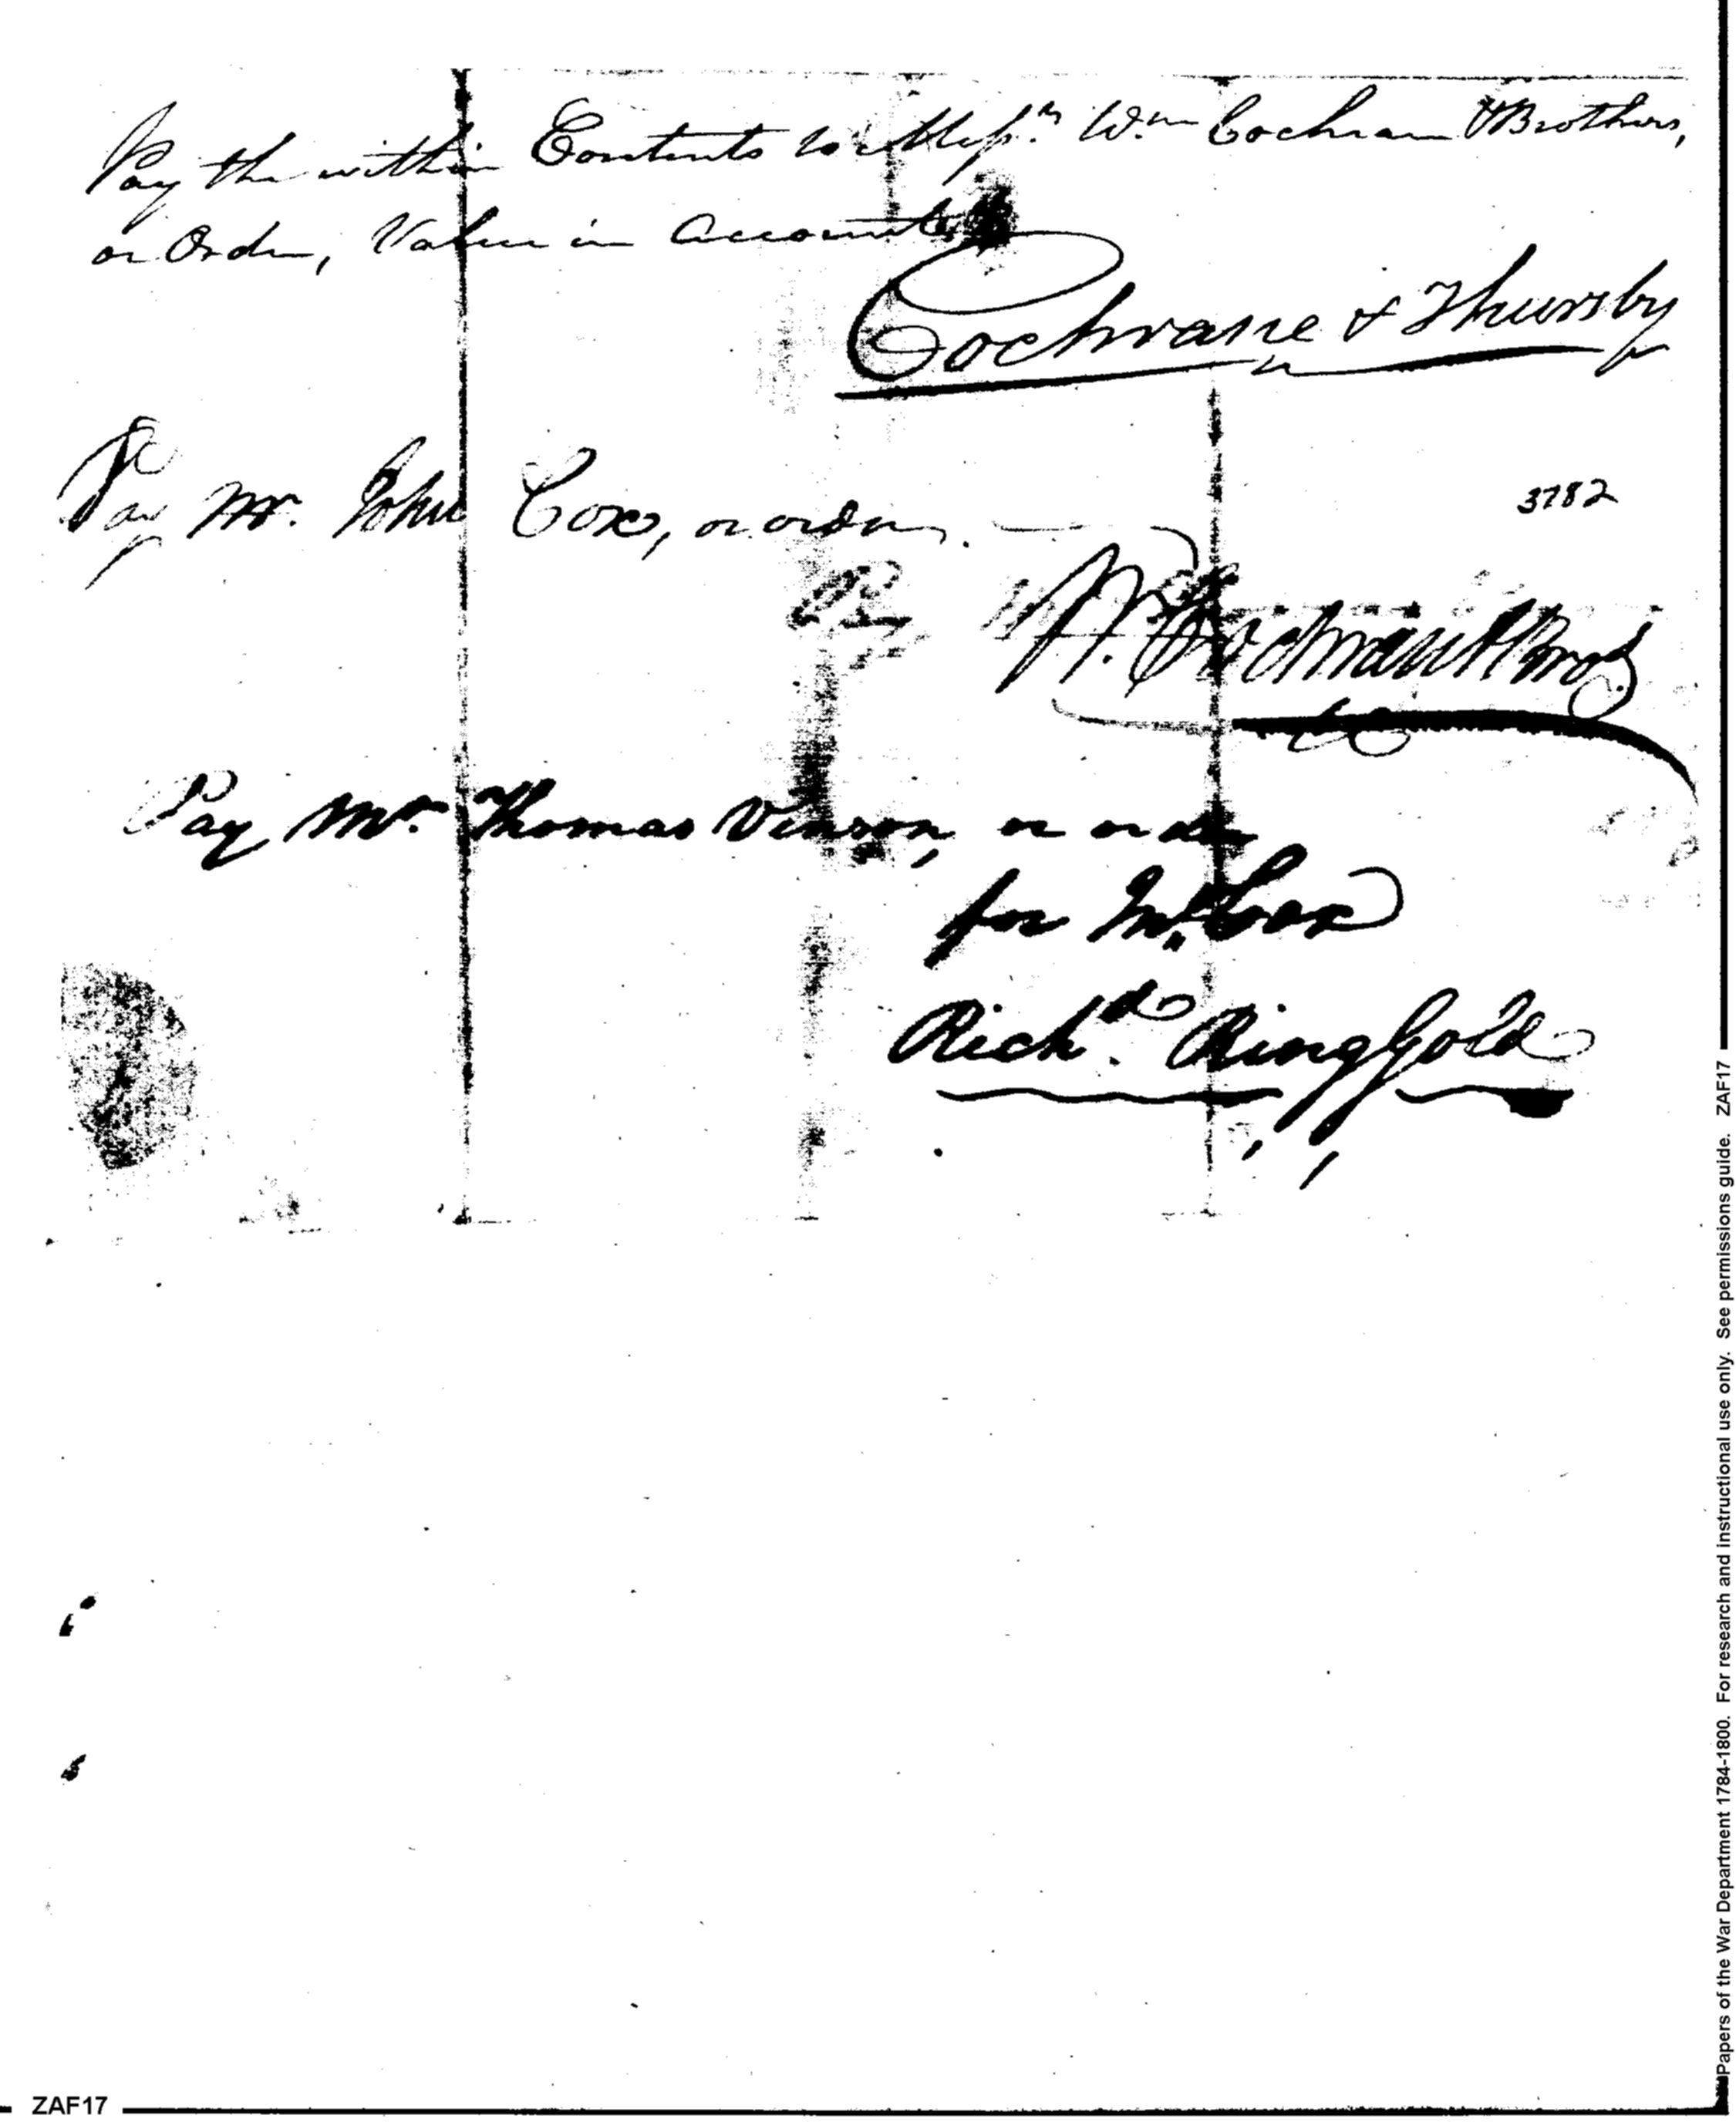 Pay the within Contents to Mess.rs Wm Cochran & Brothers,
or Order, Value in Account
Cochrane & Thursby
Pay Mr. John Cox, or order.
3782
W. Cochran & Bros
Pay Mr. Thomas Vinson, or order
for Mr. Cox
Richd. Ringgold
Papers of the War Department 1784-1800. For research and instructional use only. See permissions guide. ZAF17
ZAF17